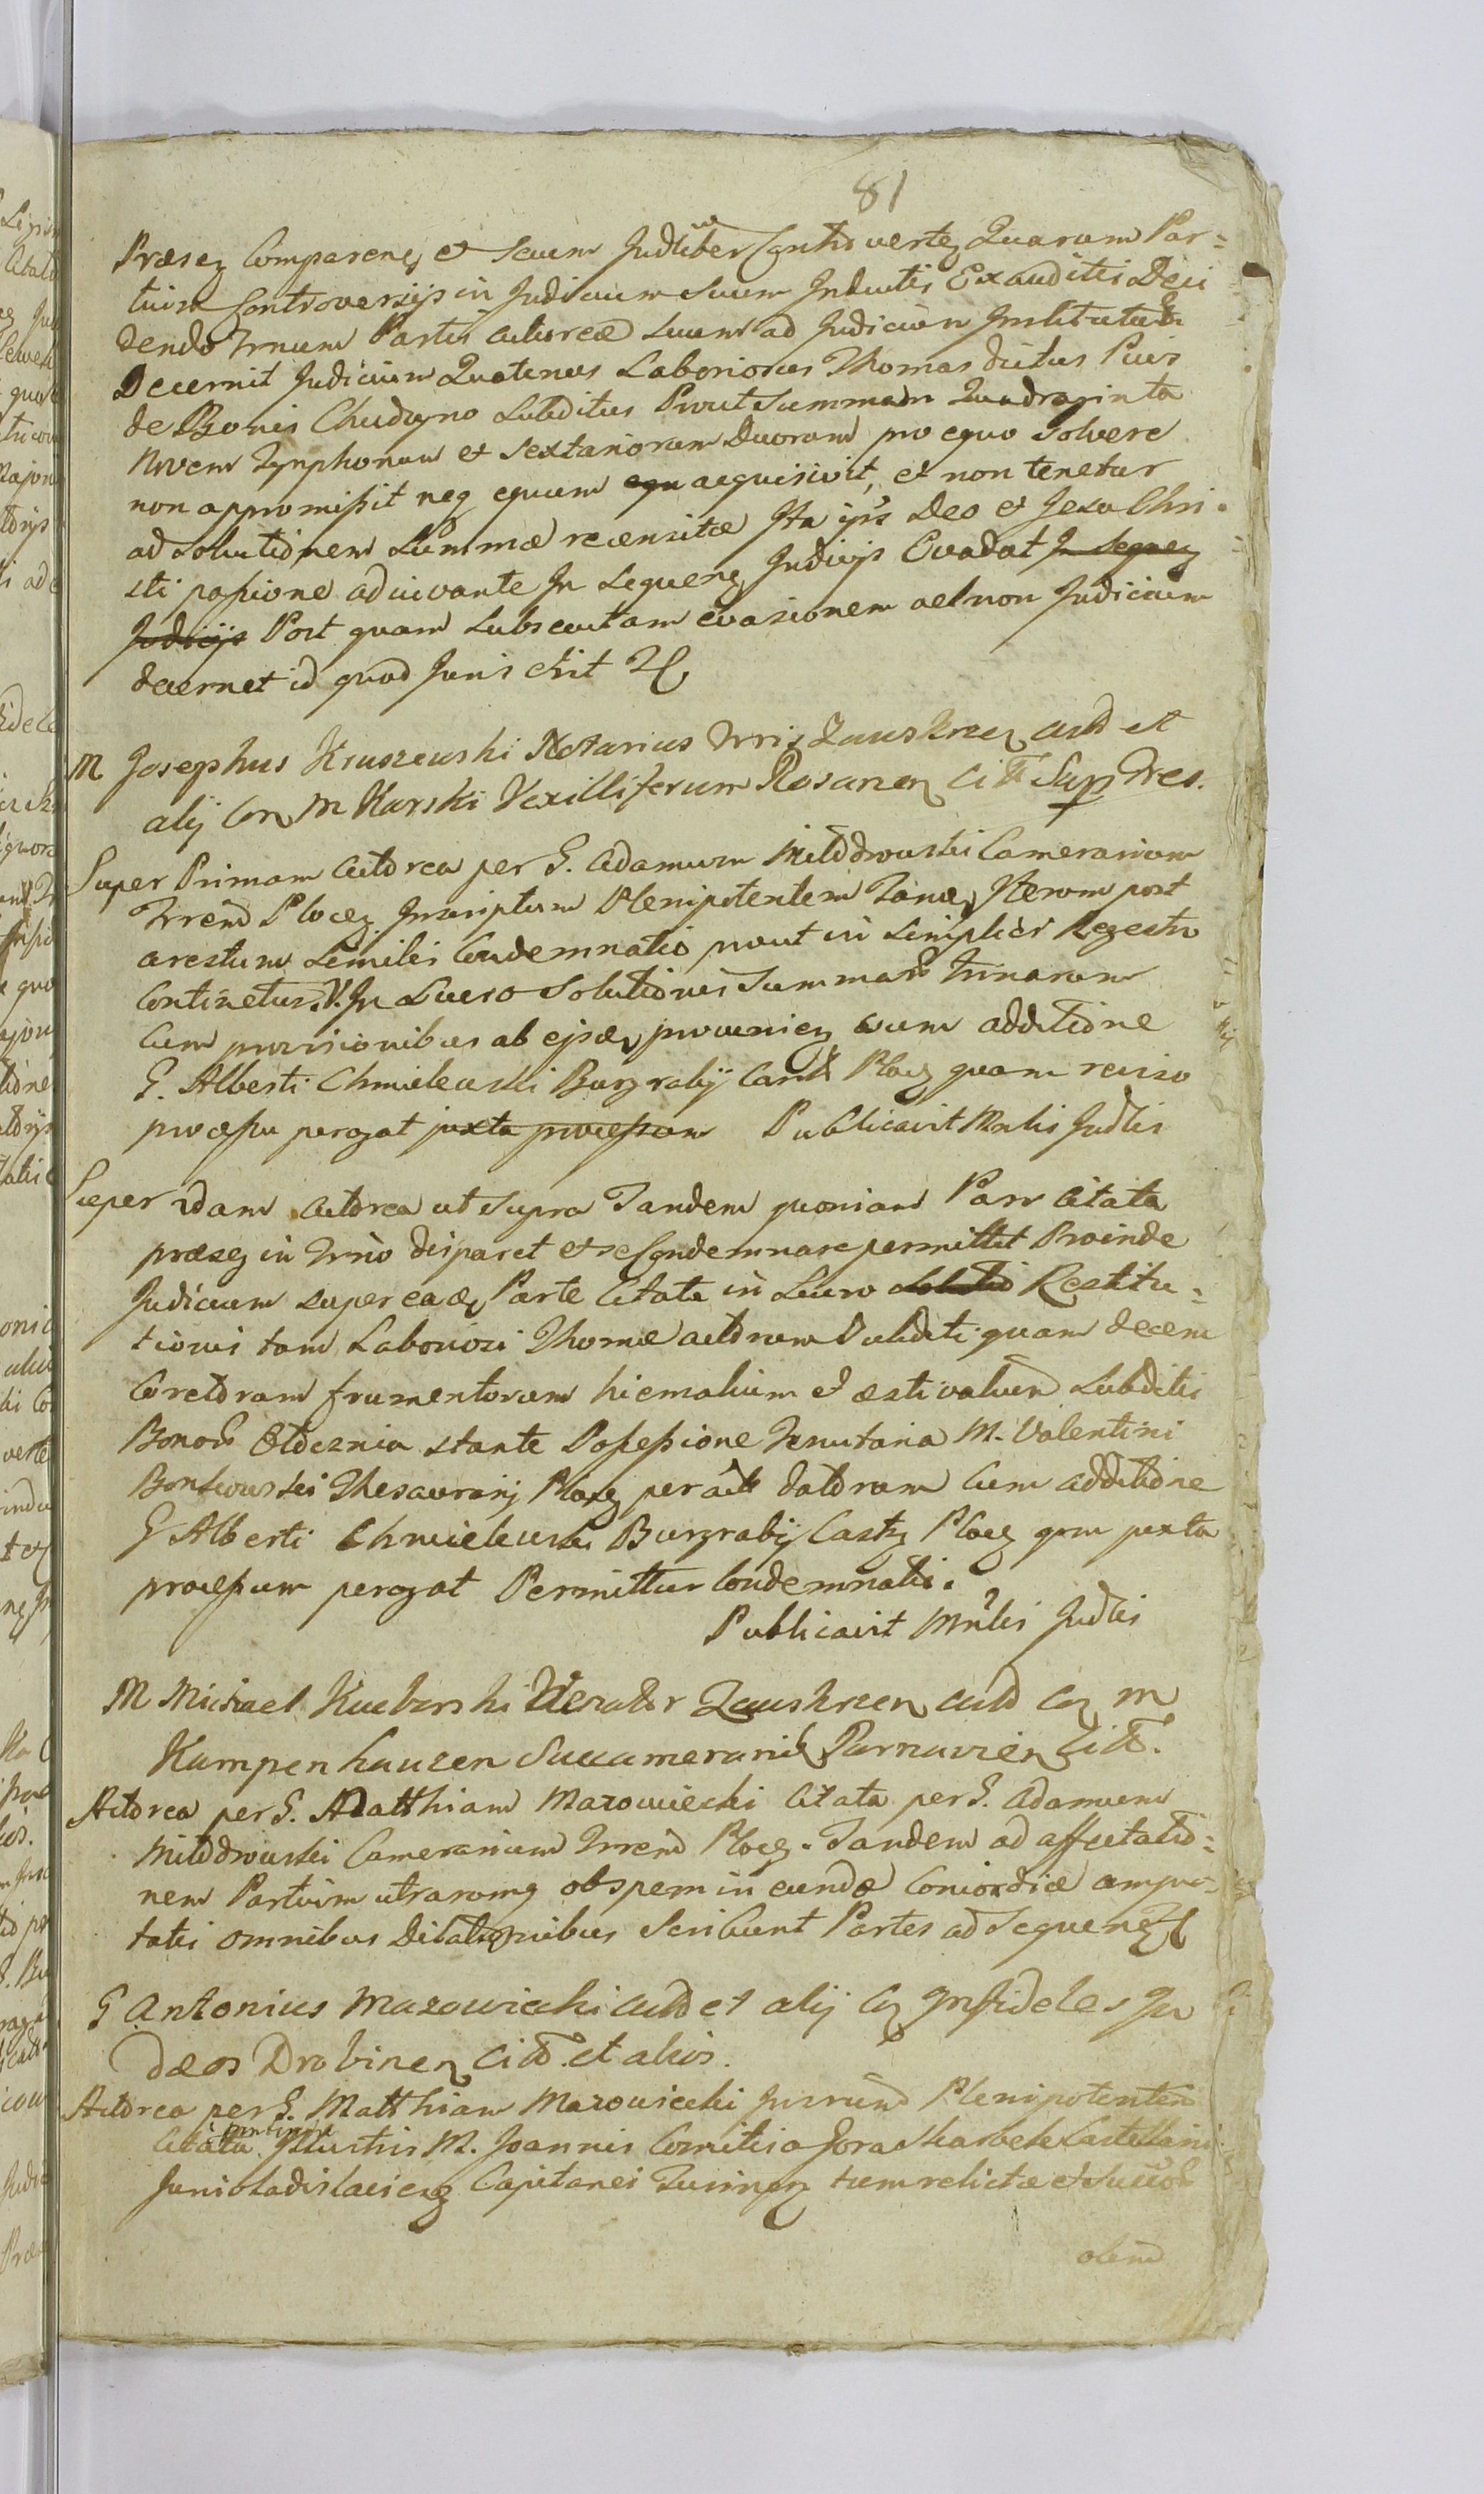 81
Præsez Comparens et secum Judtiber Controvertez Quarum Par=
tium Controversijs in Judicium suum Inductis Exauditis Deci
dendo Trnum Partis actoreæ suum ad Judicium Institutum
Decernit Judicium Quatenus Laboriosus Thomas dictus Puis
de Bonis Chudzyno Subditus Prout Summam Quadraginta
Novem Tynphonum et Sextanorum Duorum pro equo solvere
non appromisit neq equum equ acquisivit, et non tenetur
ad solutionem Summæ recensitæ Ita ipis Deo et Jesu Chri=
sti passione adiuvante In Sequenz Judicijs Evadat In Sequenz
Judicijs Post quam subsecutam evasionem vel non Judicium
decernet id quod Juris erit
M Josephus Kruszewski Notarius Trris Zauskrzen act et
alij Con M Karski Vexilliferum Rosanen Citt Sup Tres.
Super Primam Actorea per G. Adamum Mildowski Camerarium
Trren Plocz. Inscriptum Plenipotentem Tanæ Iterum post
arestum Similis Condemnatio prout in Simplici Regestro
Continetur. V. In Lucro Solutionis Summar Trinarum
Cum provisionibus ab ejsdem provenienz cum additione
G. Alberti Chmielewski Burgrabij Castr Plocz quam reciso
processu pergat juxta processum Publicavit Mnlis Judlis
Super 2dam Actorea ut supra Tandem quoniam Pars Citata
præsez in Trno disparet et se Condemnare permittit Proinde
Judicium super eadem Parte Citata in Lucro Solutio Restitu=
tionis tam Laboriosi Thomæ actorum Subditi quam decem
Coretorum frumentorum hiemalium et æstivalium Subditis
Bonor Ołdcznia stante Possessione Tenutaria M. Valentini
Bonkowski Thesaurarij Plocz per actt datorum Cum additione
G Alberti Chmielewski Burgrabij Castrz Plocz qrm juxta
processum pergat Permittur Condemnatio.
Publicavit Mnlis Judlis
M Michael Kucborski Venator Zauskrzen actt Cz M
Kampenhauzen Succamerarium Parnavien Citt.
Actorea per G. Matthiam Mazowiecki Citata per G. Adamum
Mildowski Camerarium Trren Plocz. Tandem ad affectatio=
nem Partium utrarumq ob spem in eundæ Concordiæ ampu=
tatis omnibus Dilationibus Scribunt Partes ad Sequenz
G Antonius Mazowiecki actt et alij Cz Infideles Ju
dæos Drobinen Citt. et alios.
Actorea per G. Matthiam Mazowiecki Jurrum Plenipotentem
Citata Illustris M. Joannis Comitis a Gora Skarbek Castellani
Juniwladislavienz Capitanei Tusinen tum relictæ et Succor
olim